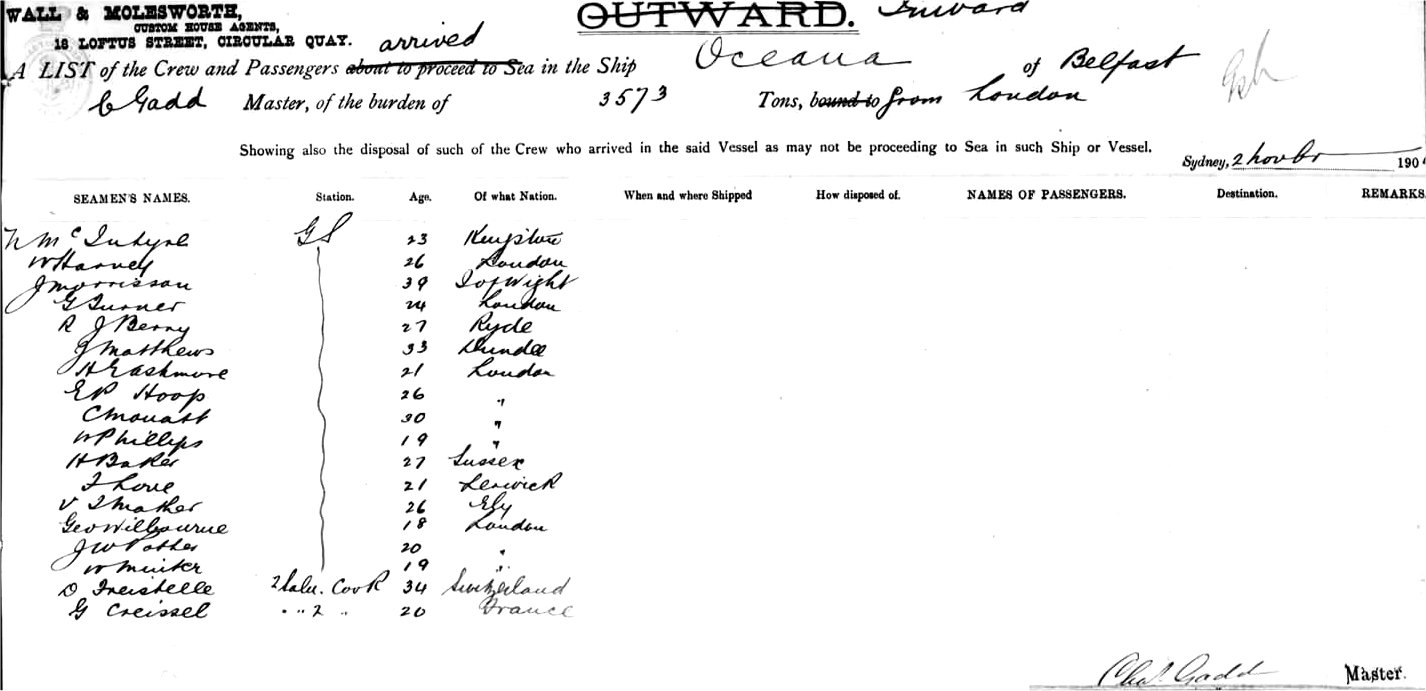 WALL & MOLESWORTH,
CUSTOM HOUSE AGENTS,
18 LOFTUS STREET, CIRCULAR QUAY.
OUTWARD. Inward
arrived
A LIST of the Crew and Passengers about to proceed to Sea in the Ship Oceana of Belfast
C Gadd Master, of the burden of 3573 Tons, bound to from London
Showing also the disposal of such of the Crew who arrived in the said Vessel as may not be proceeding to Sea in such Ship or Vessel.
Sydney, 2 Novbr 190
SEAMEN'S NAMES. Station. Age. Of what Nation. When and where Shipped How disposed of. NAMES OF PASSENGERS. Destination. REMARKS
N McIntyre GS 23 Kingston
W Harvey 26 London
J Morrisson 39 I of Wight
G Turner 24 London
R J Berry 27 Ryde
J Matthews 33 Dundee
H E Ashmore 21 London
E R Hoop 26 "
C Mouatt 30 "
W Phillips 19 "
H Baker 27 Sussex
J Love 21 Lerwick
V J Mather 26 Ely
Geo Wilbourne 18 London
J W 20 "
W Minter 19 "
O Freistelle 2 Saln. Cook 34 Switzerland
G Creissel " " 2 " 20 France
Chas. Gadd Master.